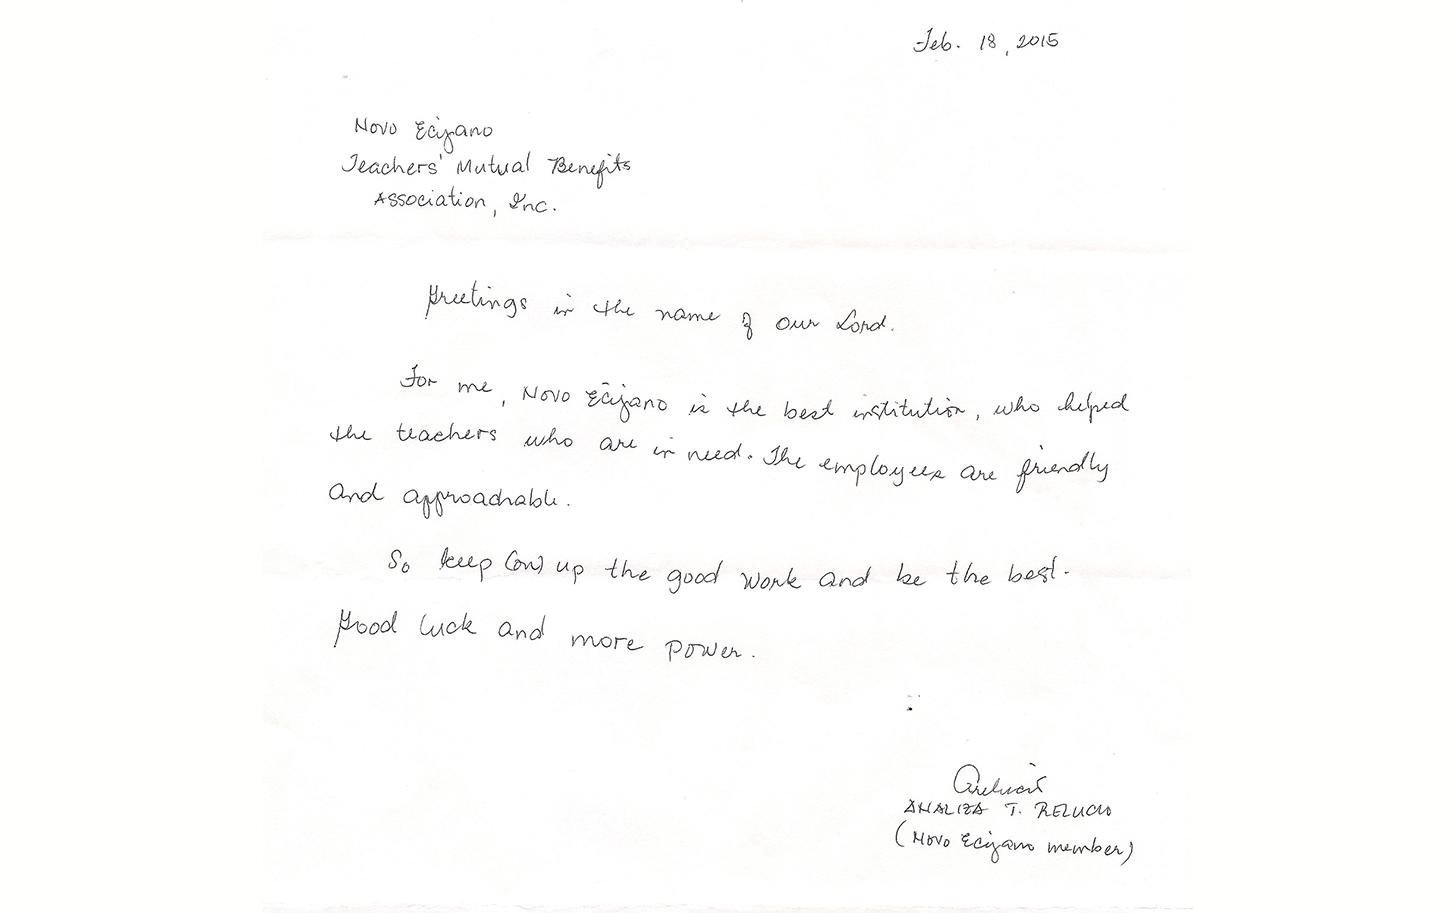 Feb. 18, 2015
Novo Ecijano
Teachers' Mutual Benefits
Association, Inc.
Greetings in the name of our Lord.
For me, Novo Ecijano is the best institution, who helped
the teachers who are in need. The employees are friendly
and approachable.
So keep (on) up the good work and be the best.
Good luck and more power.
ANALIZA T. RELUCIO
(Novo Ecijano member)